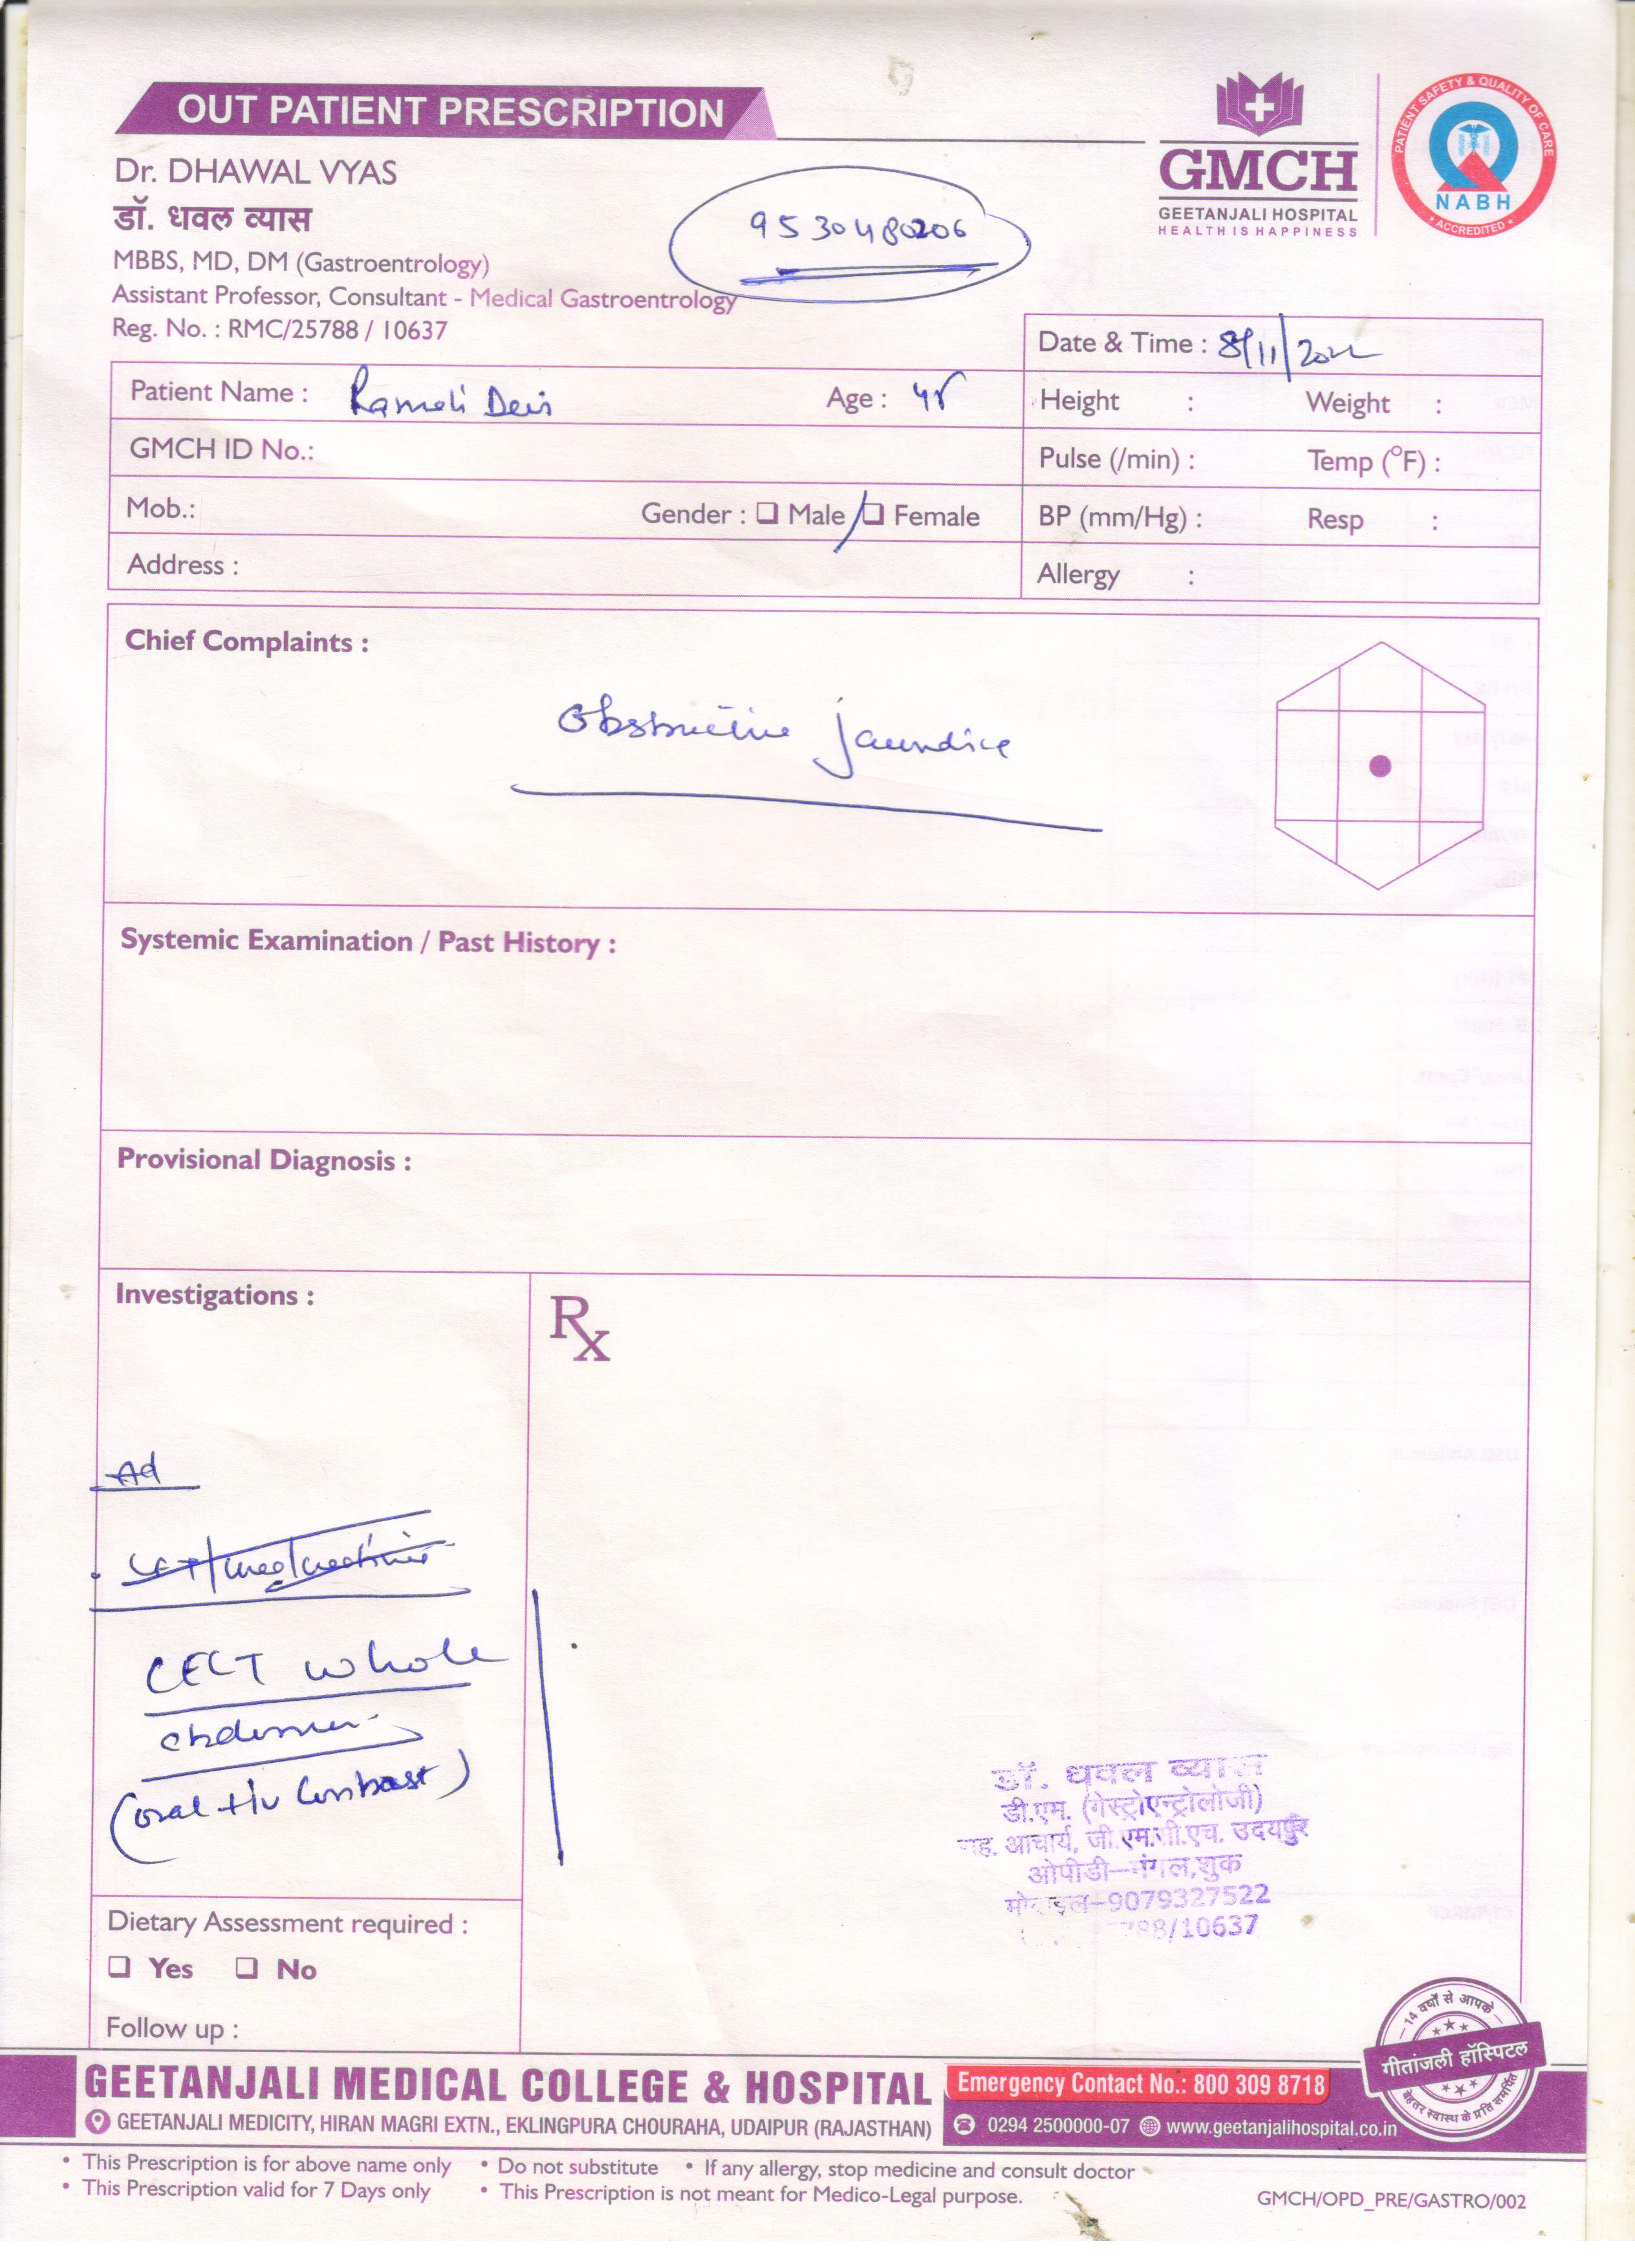 OUT PATIENT PRESCRIPTION
GMCH
GEETANJALI HOSPITAL
HEALTH IS HAPPINESS
PATIENT SAFETY & QUALITY OF CARE
NABH
ACCREDITED
Dr. DHAWAL VYAS
डॉ. धवल व्यास
MBBS, MD, DM (Gastroentrology)
Assistant Professor, Consultant - Medical Gastroentrology
Reg. No. : RMC/25788 / 10637
9530480206
Date & Time : 8/11/2022
Patient Name : Rameli Devi Age : 45
Height : Weight :
GMCH ID No.:
Pulse (/min) : Temp (°F) :
Mob.: Gender : Male / Female
BP (mm/Hg) : Resp :
Address :
Allergy :
Chief Complaints :
Obstructive jaundice
Systemic Examination / Past History :
Provisional Diagnosis :
Investigations :
Rx
Ad
CECT whole
abdomen
(oral + Iv Contrast)
डॉ. धवल व्यास
डी.एम. (गेस्ट्रोएन्ट्रोलोजी)
सह. आचार्य, जी.एम.सी.एच. उदयपुर
ओपीडी–मंगल,शुक्र
मोबाइल–9079327522
788/10637
Dietary Assessment required :
Yes No
Follow up :
14 वर्षों से आपके
गीतांजली हॉस्पिटल
बेहतर स्वास्थ के प्रति समर्पित
GEETANJALI MEDICAL COLLEGE & HOSPITAL
Emergency Contact No.: 800 309 8718
GEETANJALI MEDICITY, HIRAN MAGRI EXTN., EKLINGPURA CHOURAHA, UDAIPUR (RAJASTHAN)
0294 2500000-07 www.geetanjalihospital.co.in
• This Prescription is for above name only • Do not substitute • If any allergy, stop medicine and consult doctor
• This Prescription valid for 7 Days only • This Prescription is not meant for Medico-Legal purpose.
GMCH/OPD_PRE/GASTRO/002